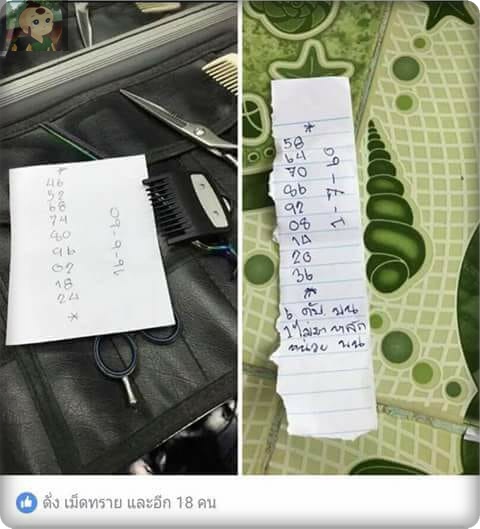 *
46
52
68
74
80
96
02
18
24
*
16-6-60
*
58
64
70
86
92
08
14
20
36
*
1-7-60
6 ดับ บน
1 ไม่มา หลัก
หน่วย บน
ดั่ง เม็ดทราย และอีก 18 คน